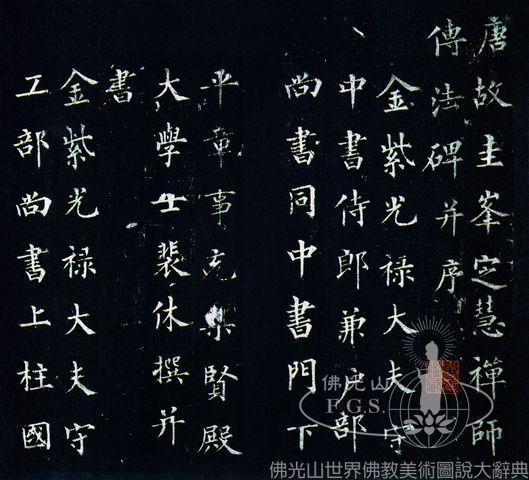 唐故圭峯定慧禪師
傳法碑并序
金紫光祿大夫守
中書侍郎兼户部
尚書同中書門下
平章事充集賢殿
大學士裴休撰并
書
金紫光祿大夫守
工部尚書上柱國
佛光山
F.G.S.
佛光山世界佛教美術圖說大辭典